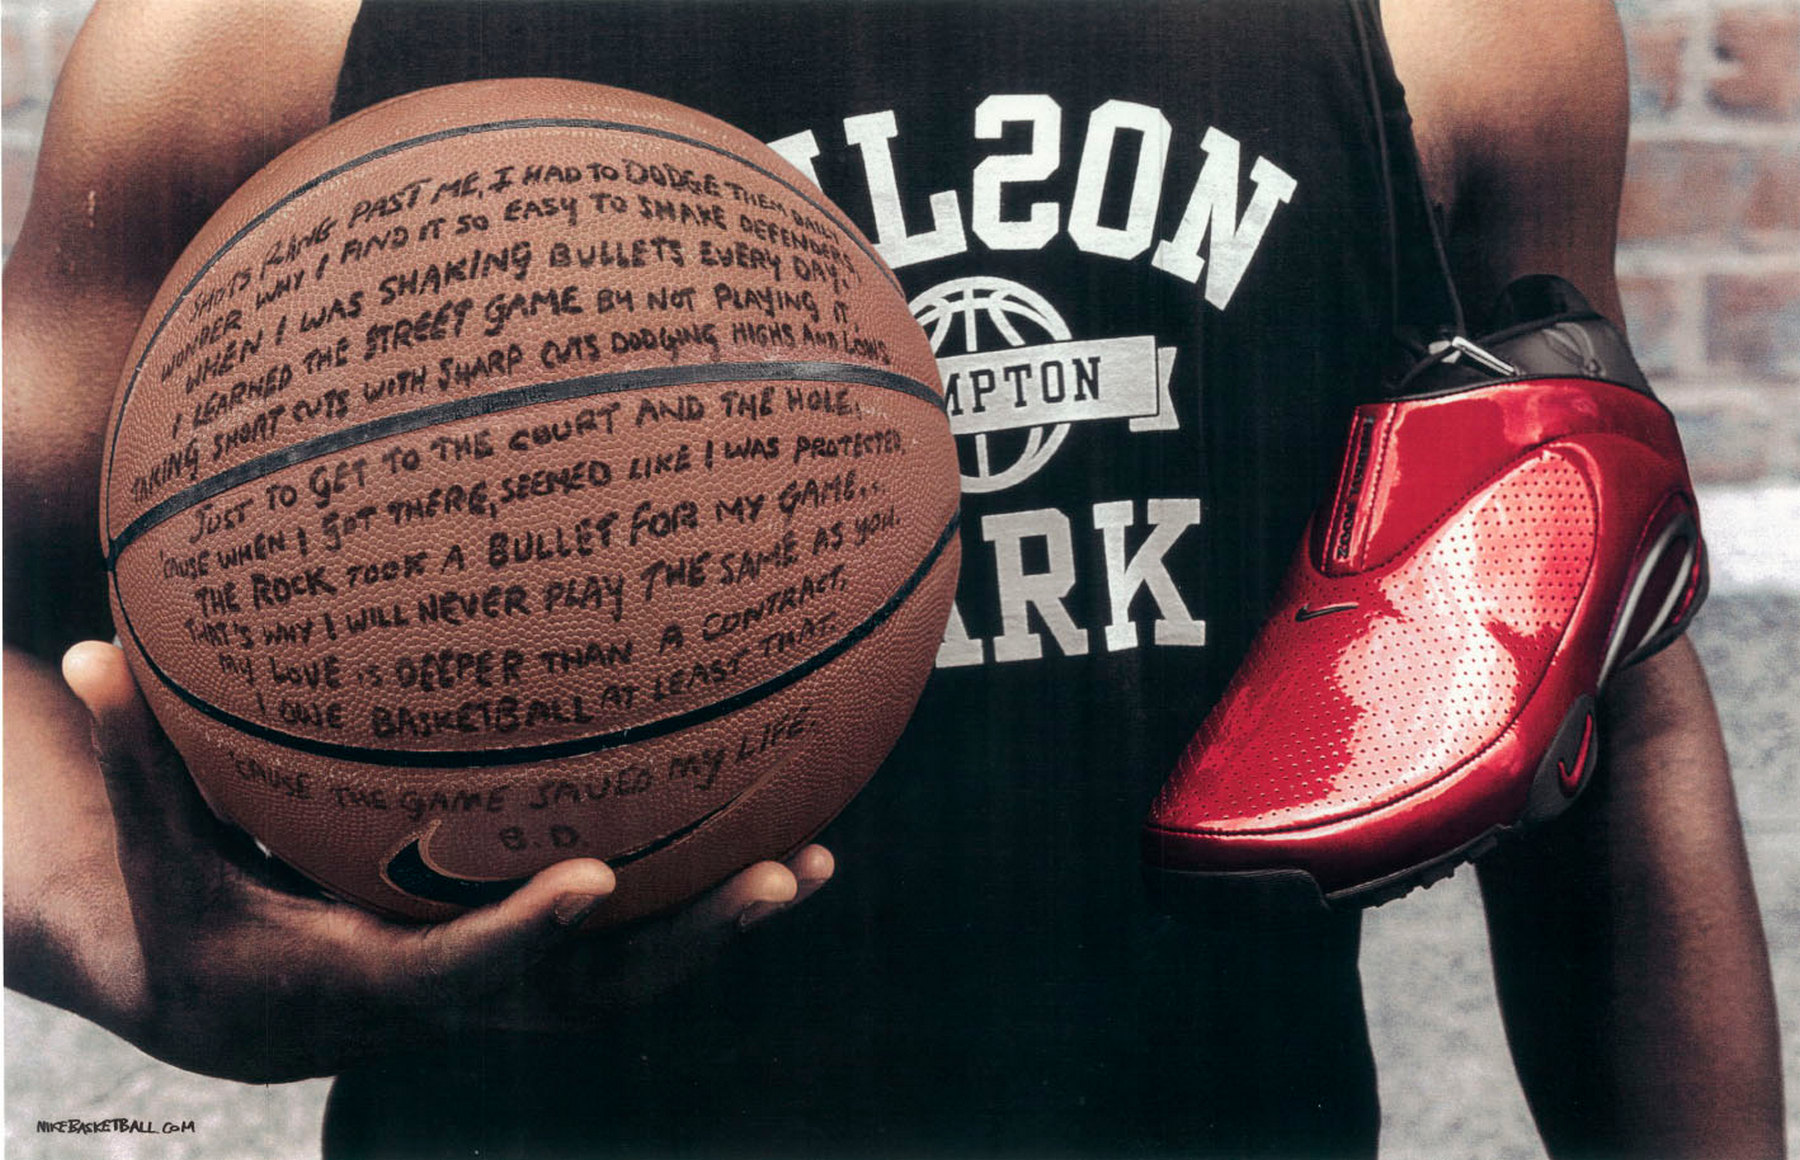 SHOTS RANG PAST ME, I HAD TO DODGE THEM DAILY
WONDER WHY I FIND IT SO EASY TO SHAKE DEFENDERS,
WHEN I WAS SHAKING BULLETS EVERY DAY.
I LEARNED THE STREET GAME BY NOT PLAYING IT.
TAKING SHORT CUTS WITH SHARP CUTS DODGING HIGHS AND LOWS
JUST TO GET TO THE COURT AND THE HOLE.
'CAUSE WHEN I GOT THERE, SEEMED LIKE I WAS PROTECTED.
THE ROCK TOOK A BULLET FOR MY GAME...
THAT'S WHY I WILL NEVER PLAY THE SAME AS YOU.
MY LOVE IS DEEPER THAN A CONTRACT,
I OWE BASKETBALL AT LEAST THAT.
'CAUSE THE GAME SAVED MY LIFE.
B.D.
ILSON
MPTON
ARK
ZOOM
NIKEBASKETBALL.COM